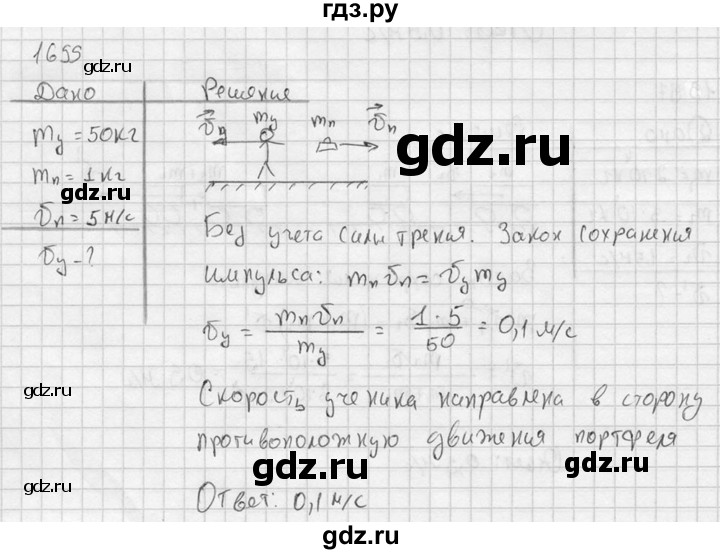 гдз.ру
1655
gdz.ru
gdz.ru
Дано
Решение
m_у = 50 кг
m_п = 1 кг
gdz.ru
υ_п = 5 м/с
υ_у - ?
υ_у m_у m_п υ_п
gdz.ru
Без учета силы трения. Закон сохранения
импульса: m_п υ_п = υ_у m_у
υ_у = m_п υ_п / m_у = 1 · 5 / 50 = 0,1 м/с
gdz.ru
gdz.ru
Скорость ученика направлена в сторону
противоположную движения портфеля
gdz.ru
gdz.ru
gdz.ru
Ответ: 0,1 м/с
gdz.ru